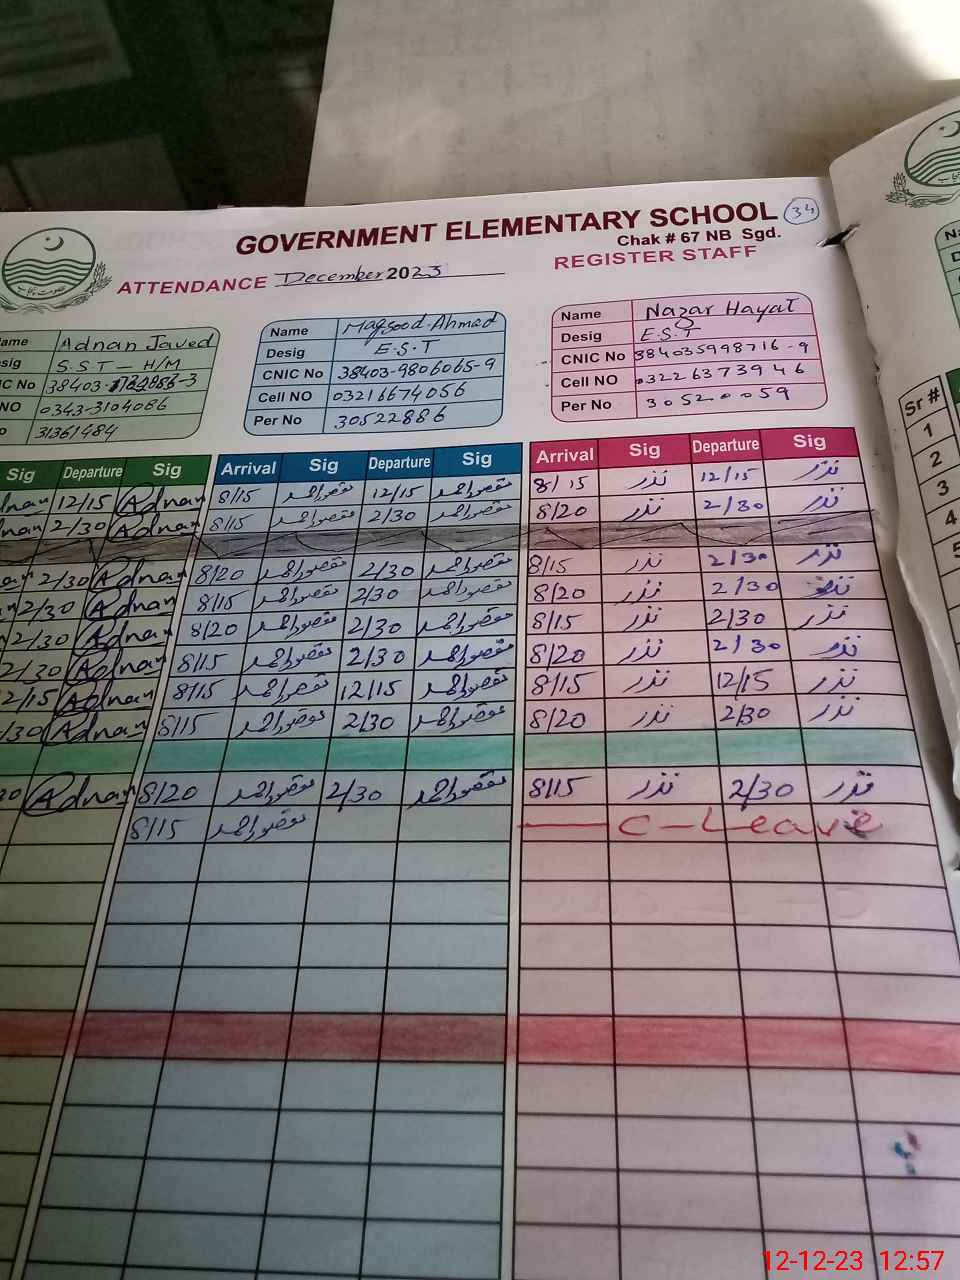 GOVERNMENT ELEMENTARY SCHOOL 34
Chak # 67 NB Sgd.
ATTENDANCE December 2023 REGISTER STAFF
ame Adnan Javed
sig S.S.T - H/M
IC No 38403-
NO 0343-3104086
o 31361484
Name Maqsood Ahmad
Desig E.S.T
CNIC No 38403-9806065-9
Cell NO 03216674056
Per No 30522886
Name Nazar Hayat
Desig E.S.T
CNIC No 384035998716-9
Cell NO 03226373946
Per No 30520059
Sig Departure Sig Arrival Sig Departure Sig Arrival Sig Departure Sig
dnan 12/15 Adnan 8/15 مقصود احمد 12/15 مقصود احمد 8/15 نذر 12/15 نذر
nan 2/30 Adnan 8/15 مقصود احمد 2/30 مقصود احمد 8/20 نذر 2/30 نذر
an 2/30 Adnan 8/20 مقصود احمد 2/30 مقصود احمد 8/15 نذر 2/30 نذر
n 2/30 Adnan 8/15 مقصود احمد 2/30 مقصود احمد 8/20 نذر 2/30 نذر
2/30 Adnan 8/20 مقصود احمد 2/30 مقصود احمد 8/15 نذر 2/30 نذر
2/30 Adnan 8/15 مقصود احمد 2/30 مقصود احمد 8/20 نذر 2/30 نذر
2/15 Adnan 8/15 مقصود احمد 12/15 مقصود احمد 8/15 نذر 12/15 نذر
/30 Adnan 8/15 مقصود احمد 2/30 مقصود احمد 8/20 نذر 2/30 نذر
30 Adnan 8/20 مقصود احمد 2/30 مقصود احمد 8/15 نذر 2/30 نذر
8/15 مقصود احمد C-Leave
Na
D
Sr #
1
2
3
4
5
12-12-23 12:57